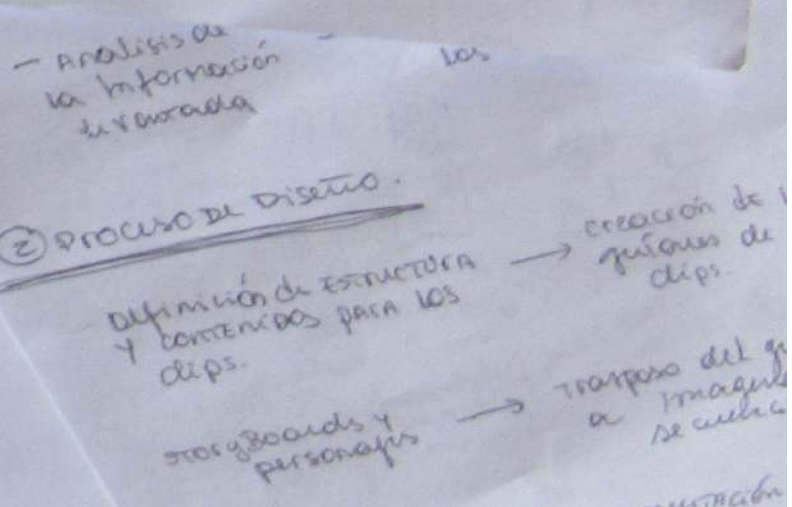 - Analisis de
la Información
levantada
los
② Proceso de Diseño.
Definición de Estructura
y contenidos para los
clips.
→ creación de
guiones de
clips.
Storyboards y
personajes
→ Traspaso del
a